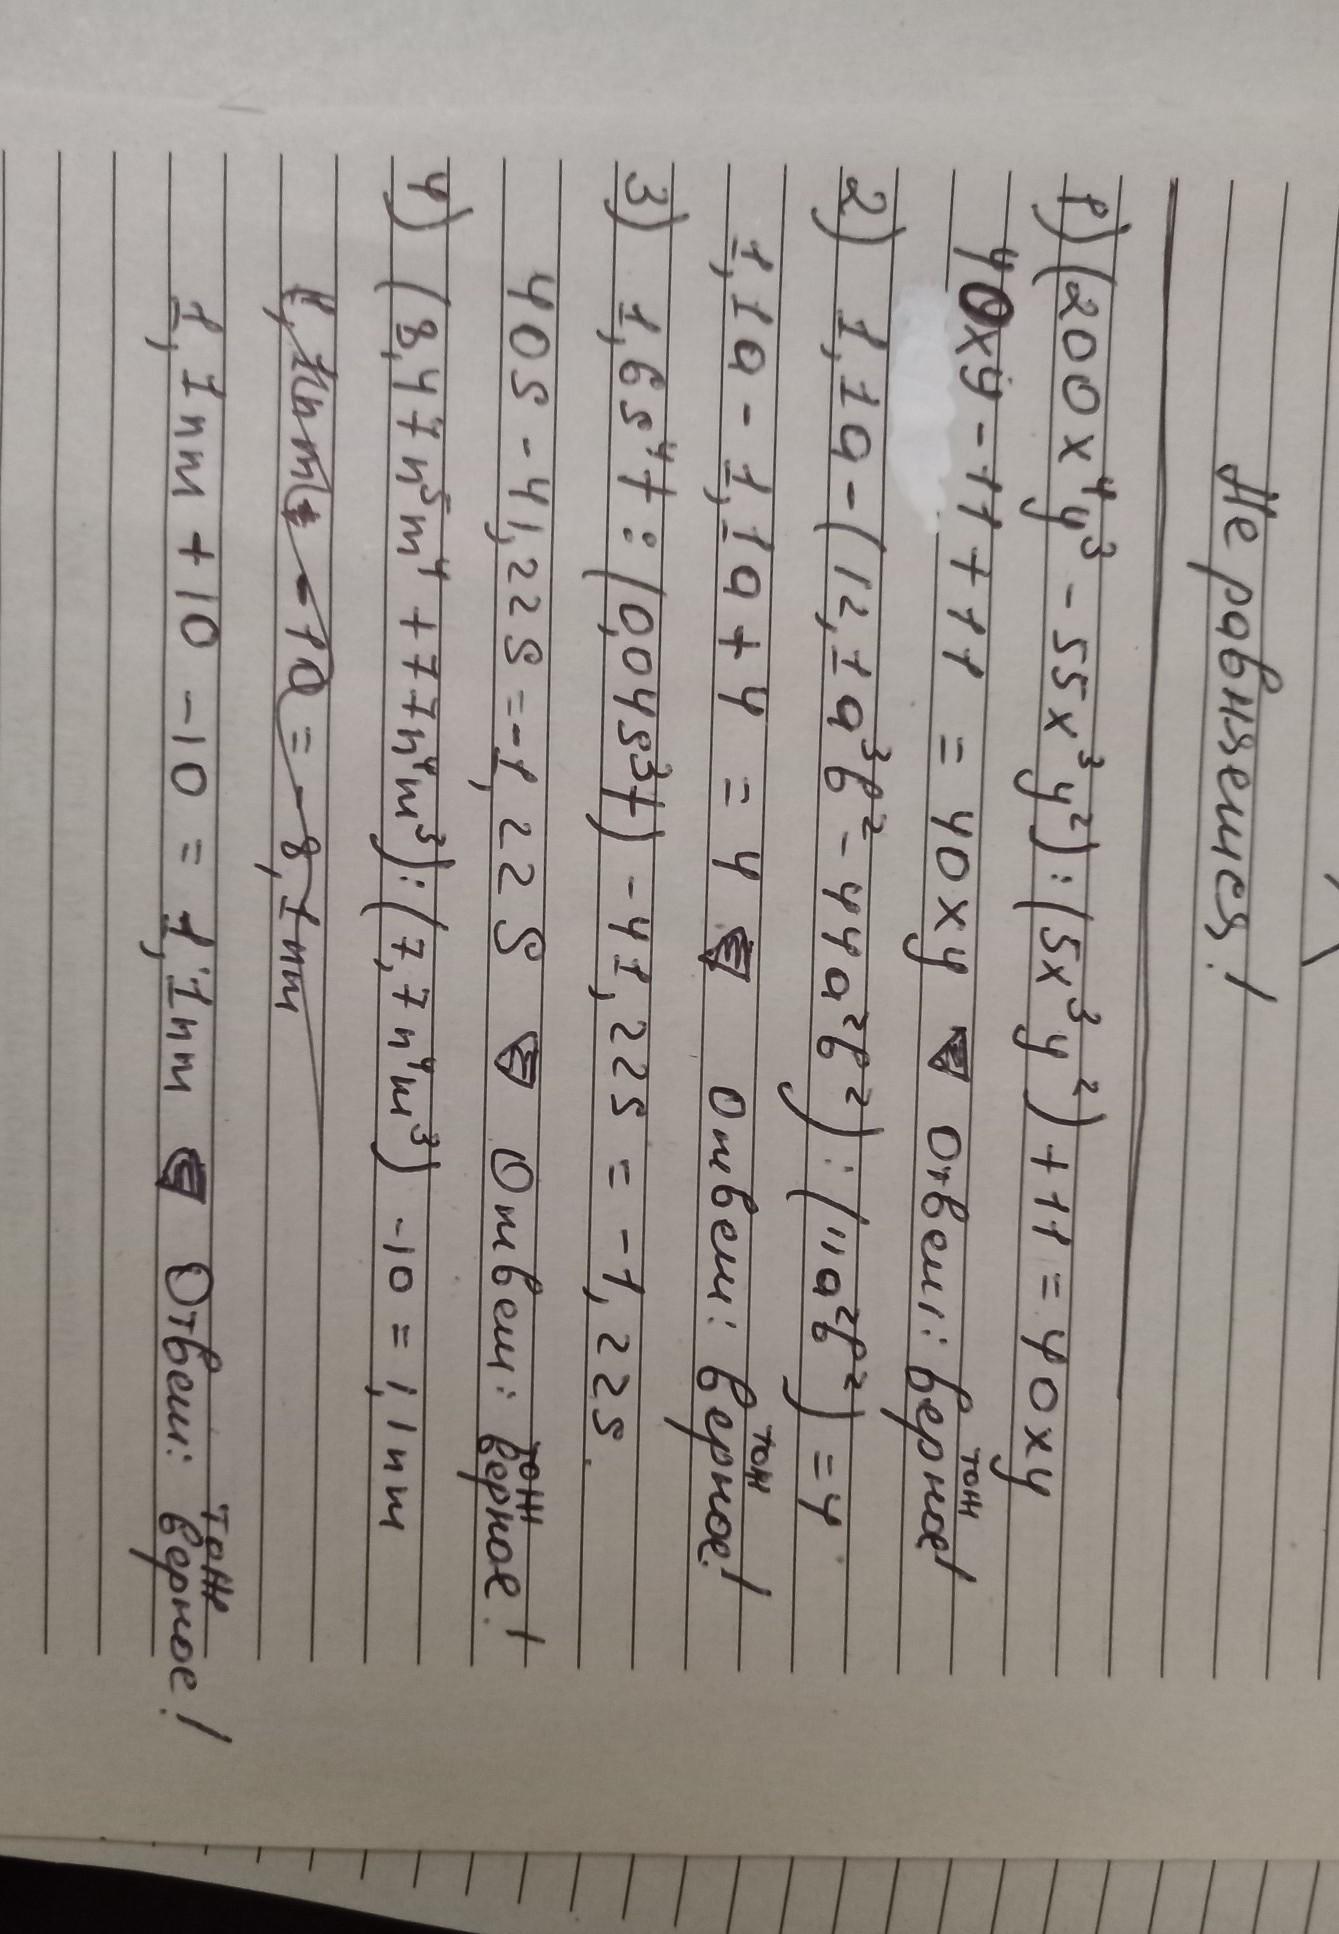 Не равняется!
1) (200x⁴y³ - 55x³y²) : (5x³y²) + 11 = 40xy
40xy - 11 + 11 = 40xy Ответ: верное тож!
2) 1,1a - (12,1a³b² - 44a²b²) : (11a²b²) = 4
1,1a - 1,1a + 4 = 4 Ответ: верное тож!
3) 1,6s⁴t : (0,04s³t) - 41,22s = -1,22s.
40s - 41,22s = -1,22s Ответ: верное тож!
4) (8,47n⁵m⁴ + 77n⁴m³) : (7,7n⁴m³) - 10 = 1,1nm
1,1nm + 10 - 10 = 1,1nm Ответ: верное тож!